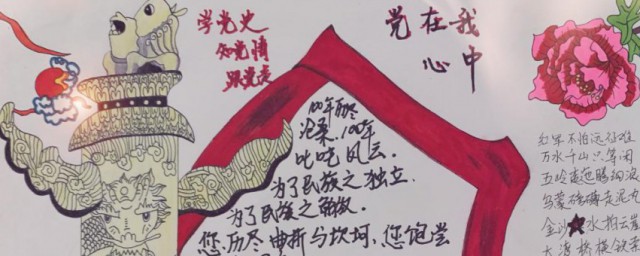 学党史
知党情
跟党走
党在我
心中
100年历尽
沧桑.100年
叱咤风云.
为了民族之独立.
为了民族之解放.
您.历尽曲折与坎坷,您饱尝
红军不怕远征难
万水千山只等闲
五岭逶迤腾细浪
乌蒙磅礴走泥丸
金沙水拍云崖
大渡桥横铁索